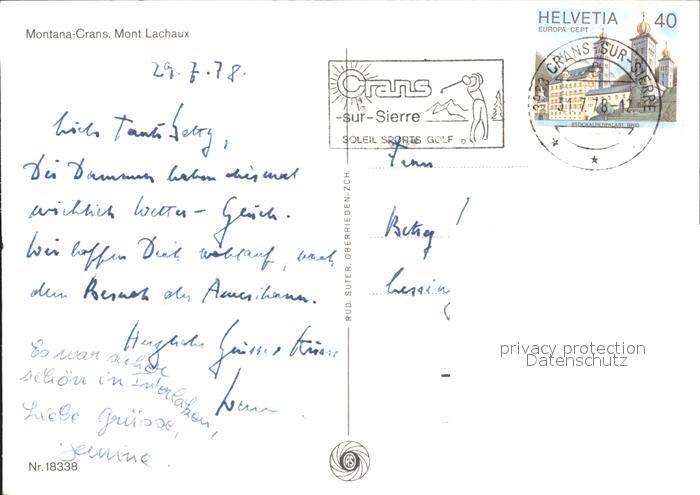 Montana-Crans. Mont Lachaux
29.7.78.
HELVETIA 40
EUROPA CEPT
STOCKALPERPALAST, BRIG
CRANS-SUR-SIERRE
31.7.78-12
Crans
-sur-Sierre
SOLEIL SPORTS GOLF
Tante Betty,
Die Dammen haben diesmal
wirklich Wetter - Glück.
Wir hoffen Dich wohlauf, nach
dem Besuch der Amerikaner.
Herzliche Grüsse + Küsse
Es war sicher
schön in Interlaken,
Liebe Grüsse,
Nr. 18338
RUD. SUTER, OBERRIEDEN-ZCH.
RS
Frau
Betty
Lessing
privacy protection
Datenschutz